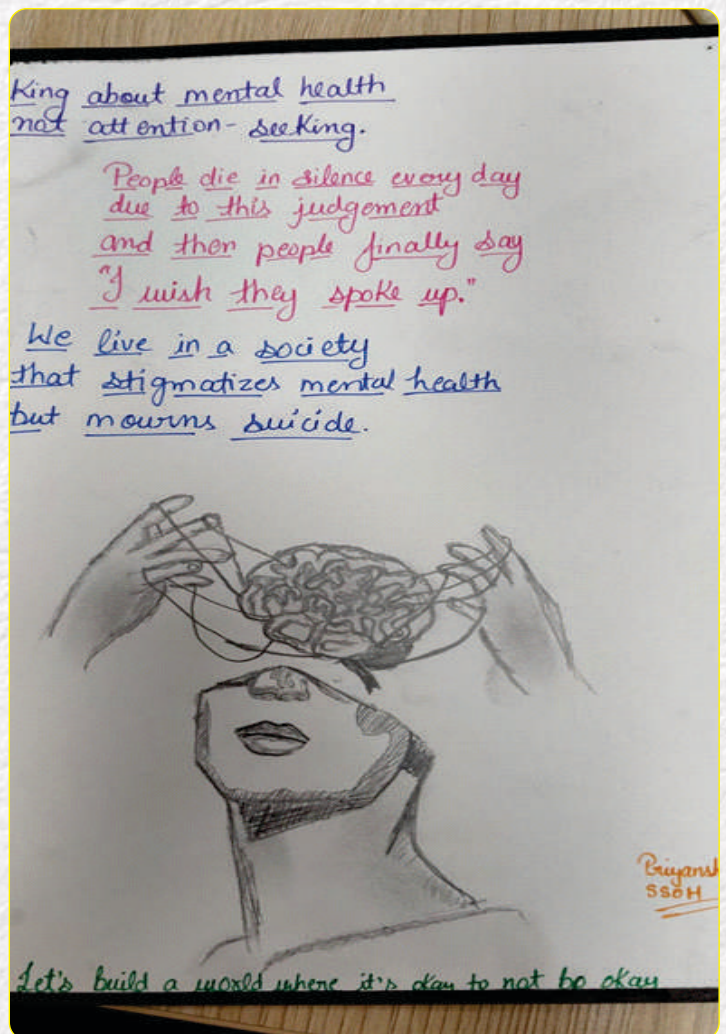 King about mental health
not attention-seeking.
People die in silence every day
due to this judgement
and then people finally say
"I wish they spoke up."
We live in a society
that stigmatizes mental health
but mourns suicide.
Priyansh
SSOH
Let's build a world where it's okay to not be okay